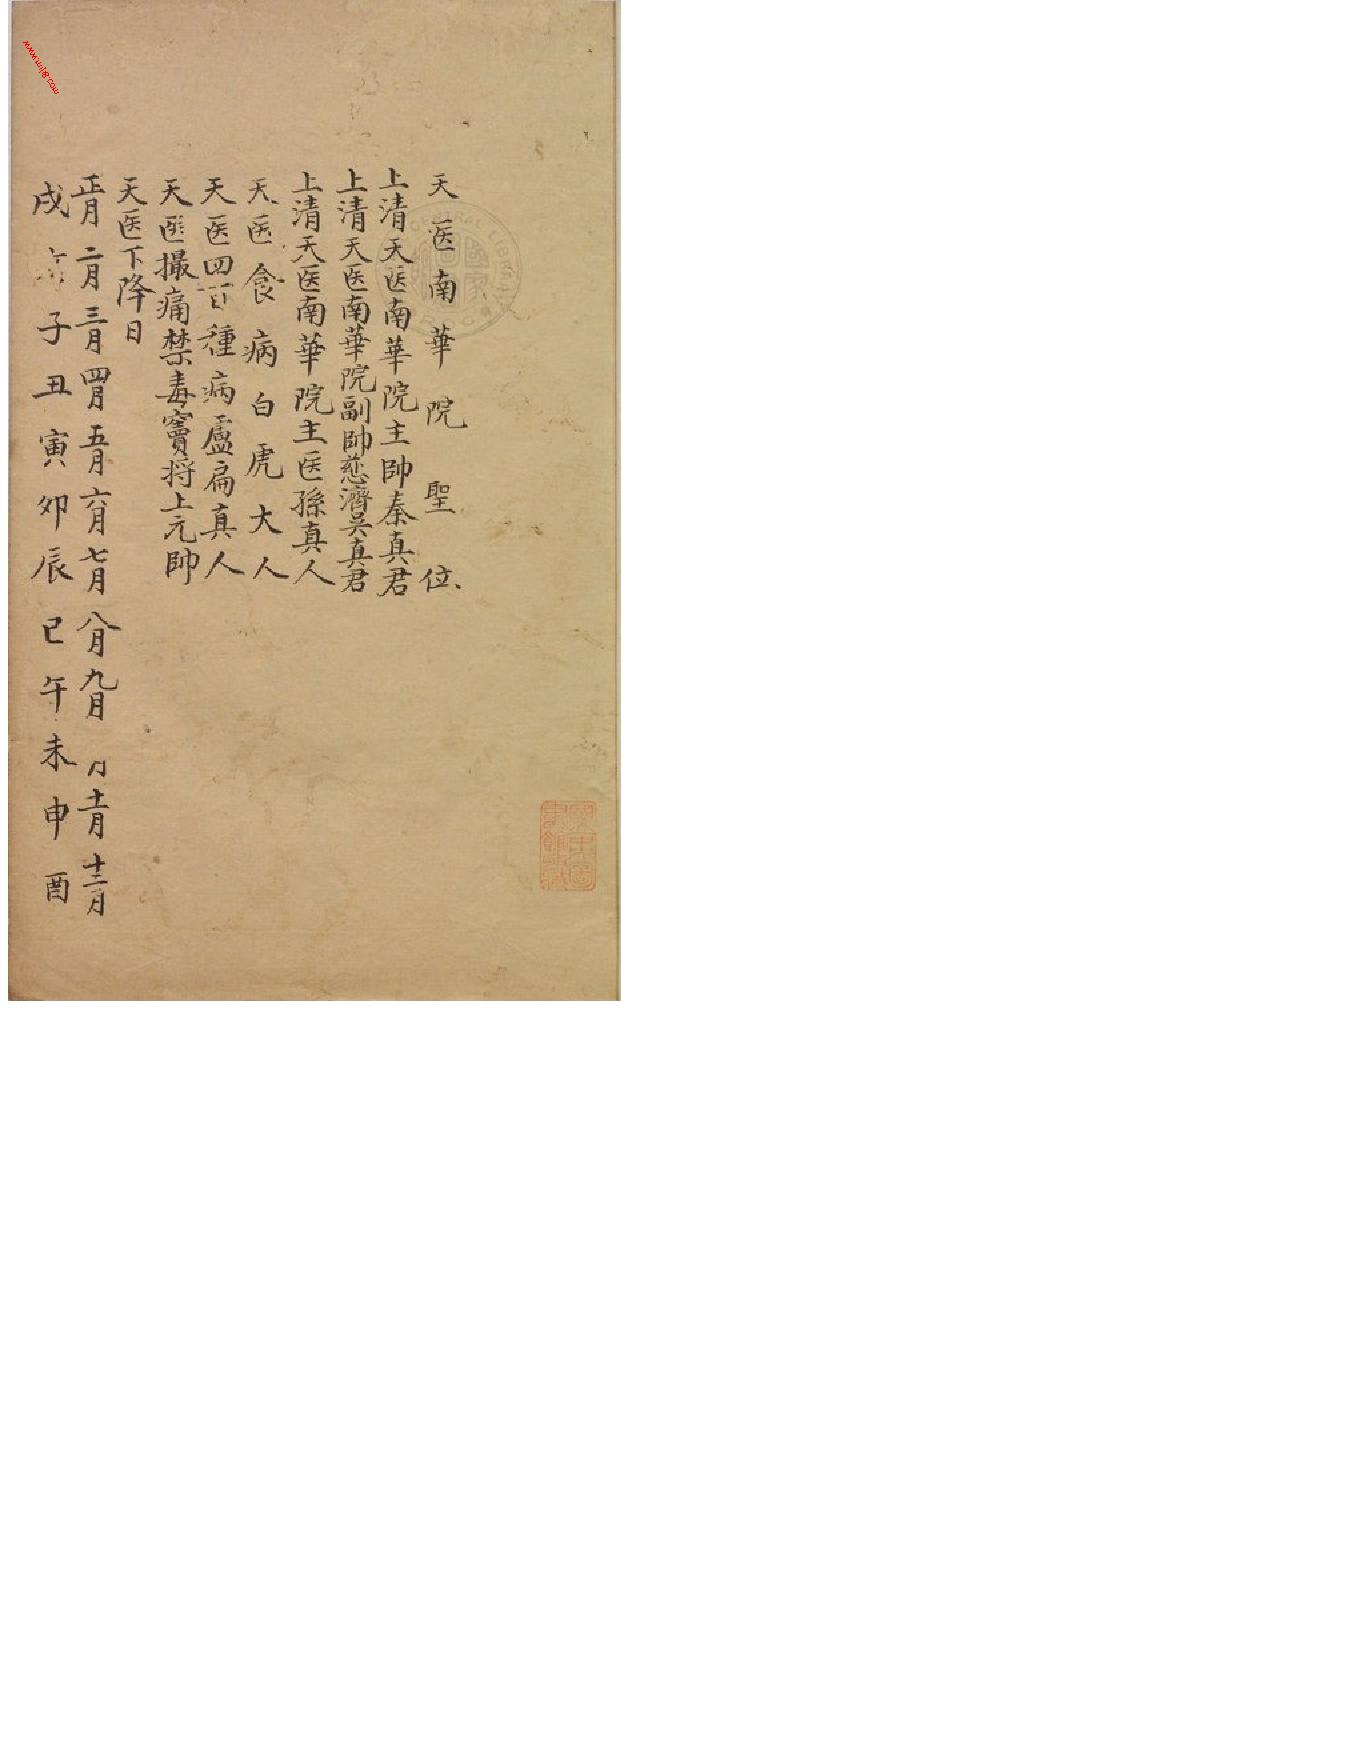 天医南華院聖位
上清天医南華院主帥秦真君
上清天医南華院副帥慈濟吴真君
上清天医南華院主医孫真人
天医食病白虎大人
天医四百種病盧扁真人
天医撮痛禁毒竇将上元帥
天医下降日
正月二月三月四月五月六月七月八月九月 月十一月十二月
戌 子丑寅卯辰巳午未申酉
CENTRAL LIBRARY